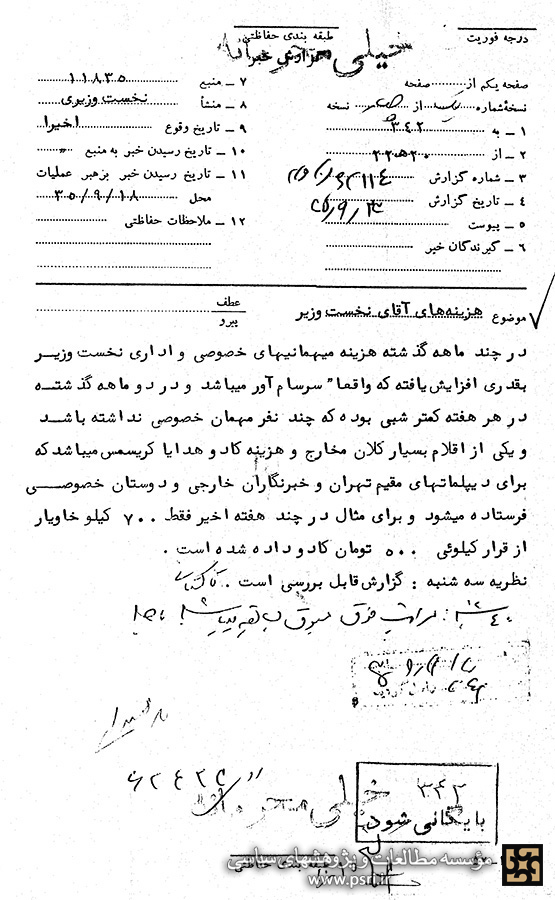 درجه فوریت
طبقه بندی حفاظتی
خیلی محرمانه
گزارش خبر
صفحه یکم از صفحه
نسخهٔ شماره یک از نسخه
۱ ــ به ۳۴۲
۲ ــ از ۲۰ه۲۲
۳ ــ شماره گزارش
۴ ــ تاریخ گزارش
۵ ــ پیوست
۶ ــ گیرندگان خبر
۷ ــ منبع ۱۱۸۳۵
۸ ــ منشأ نخست وزیری
۹ ــ تاریخ وقوع اخیرا
۱۰ ــ تاریخ رسیدن خبر به منبع "
۱۱ ــ تاریخ رسیدن خبر برهبر عملیات
محل ۳۵/۹/۱۸
۱۲ ــ ملاحظات حفاظتی
موضوع هزینه‌های آقای نخست وزیر
عطف
پیرو
در چند ماهه گذشته هزینه میهمانیهای خصوصی و اداری نخست وزیر
بقدری افزایش یافته که واقعا" سرسام آور میباشد و در دو ماهه گذشته
در هر هفته کمتر شبی بوده که چند نفر مهمان خصوصی نداشته باشد
و یکی از اقلام بسیار کلان مخارج و هزینه کادو هدایا کریسمس میباشد که
برای دیپلماتهای مقیم تهران و خبرنگاران خارجی و دوستان خصوصی
فرستاده میشود و برای مثال در چند هفته اخیر فقط ۷۰۰ کیلو خاویار
از قرار کیلوئی ۵۰۰ تومان کادو داده شده است .
نظریه سه شنبه : گزارش قابل بررسی است .
خیلی محرمانه
۳۴۲
بایگانی شود
طبقه بندی حفاظتی
مؤسسه مطالعات و پژوهشهای سیاسی
www.psri.ir